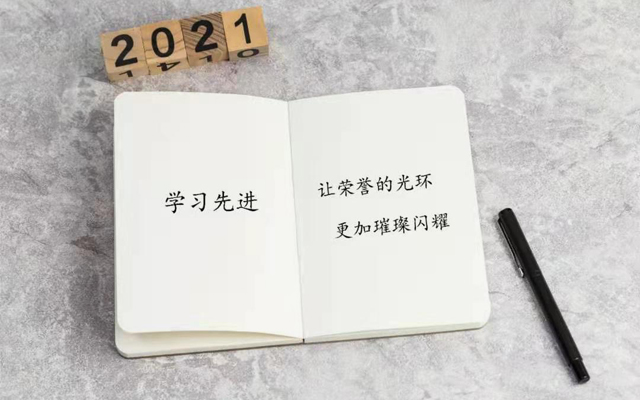 2021
学习先进
让荣誉的光环
更加璀璨闪耀